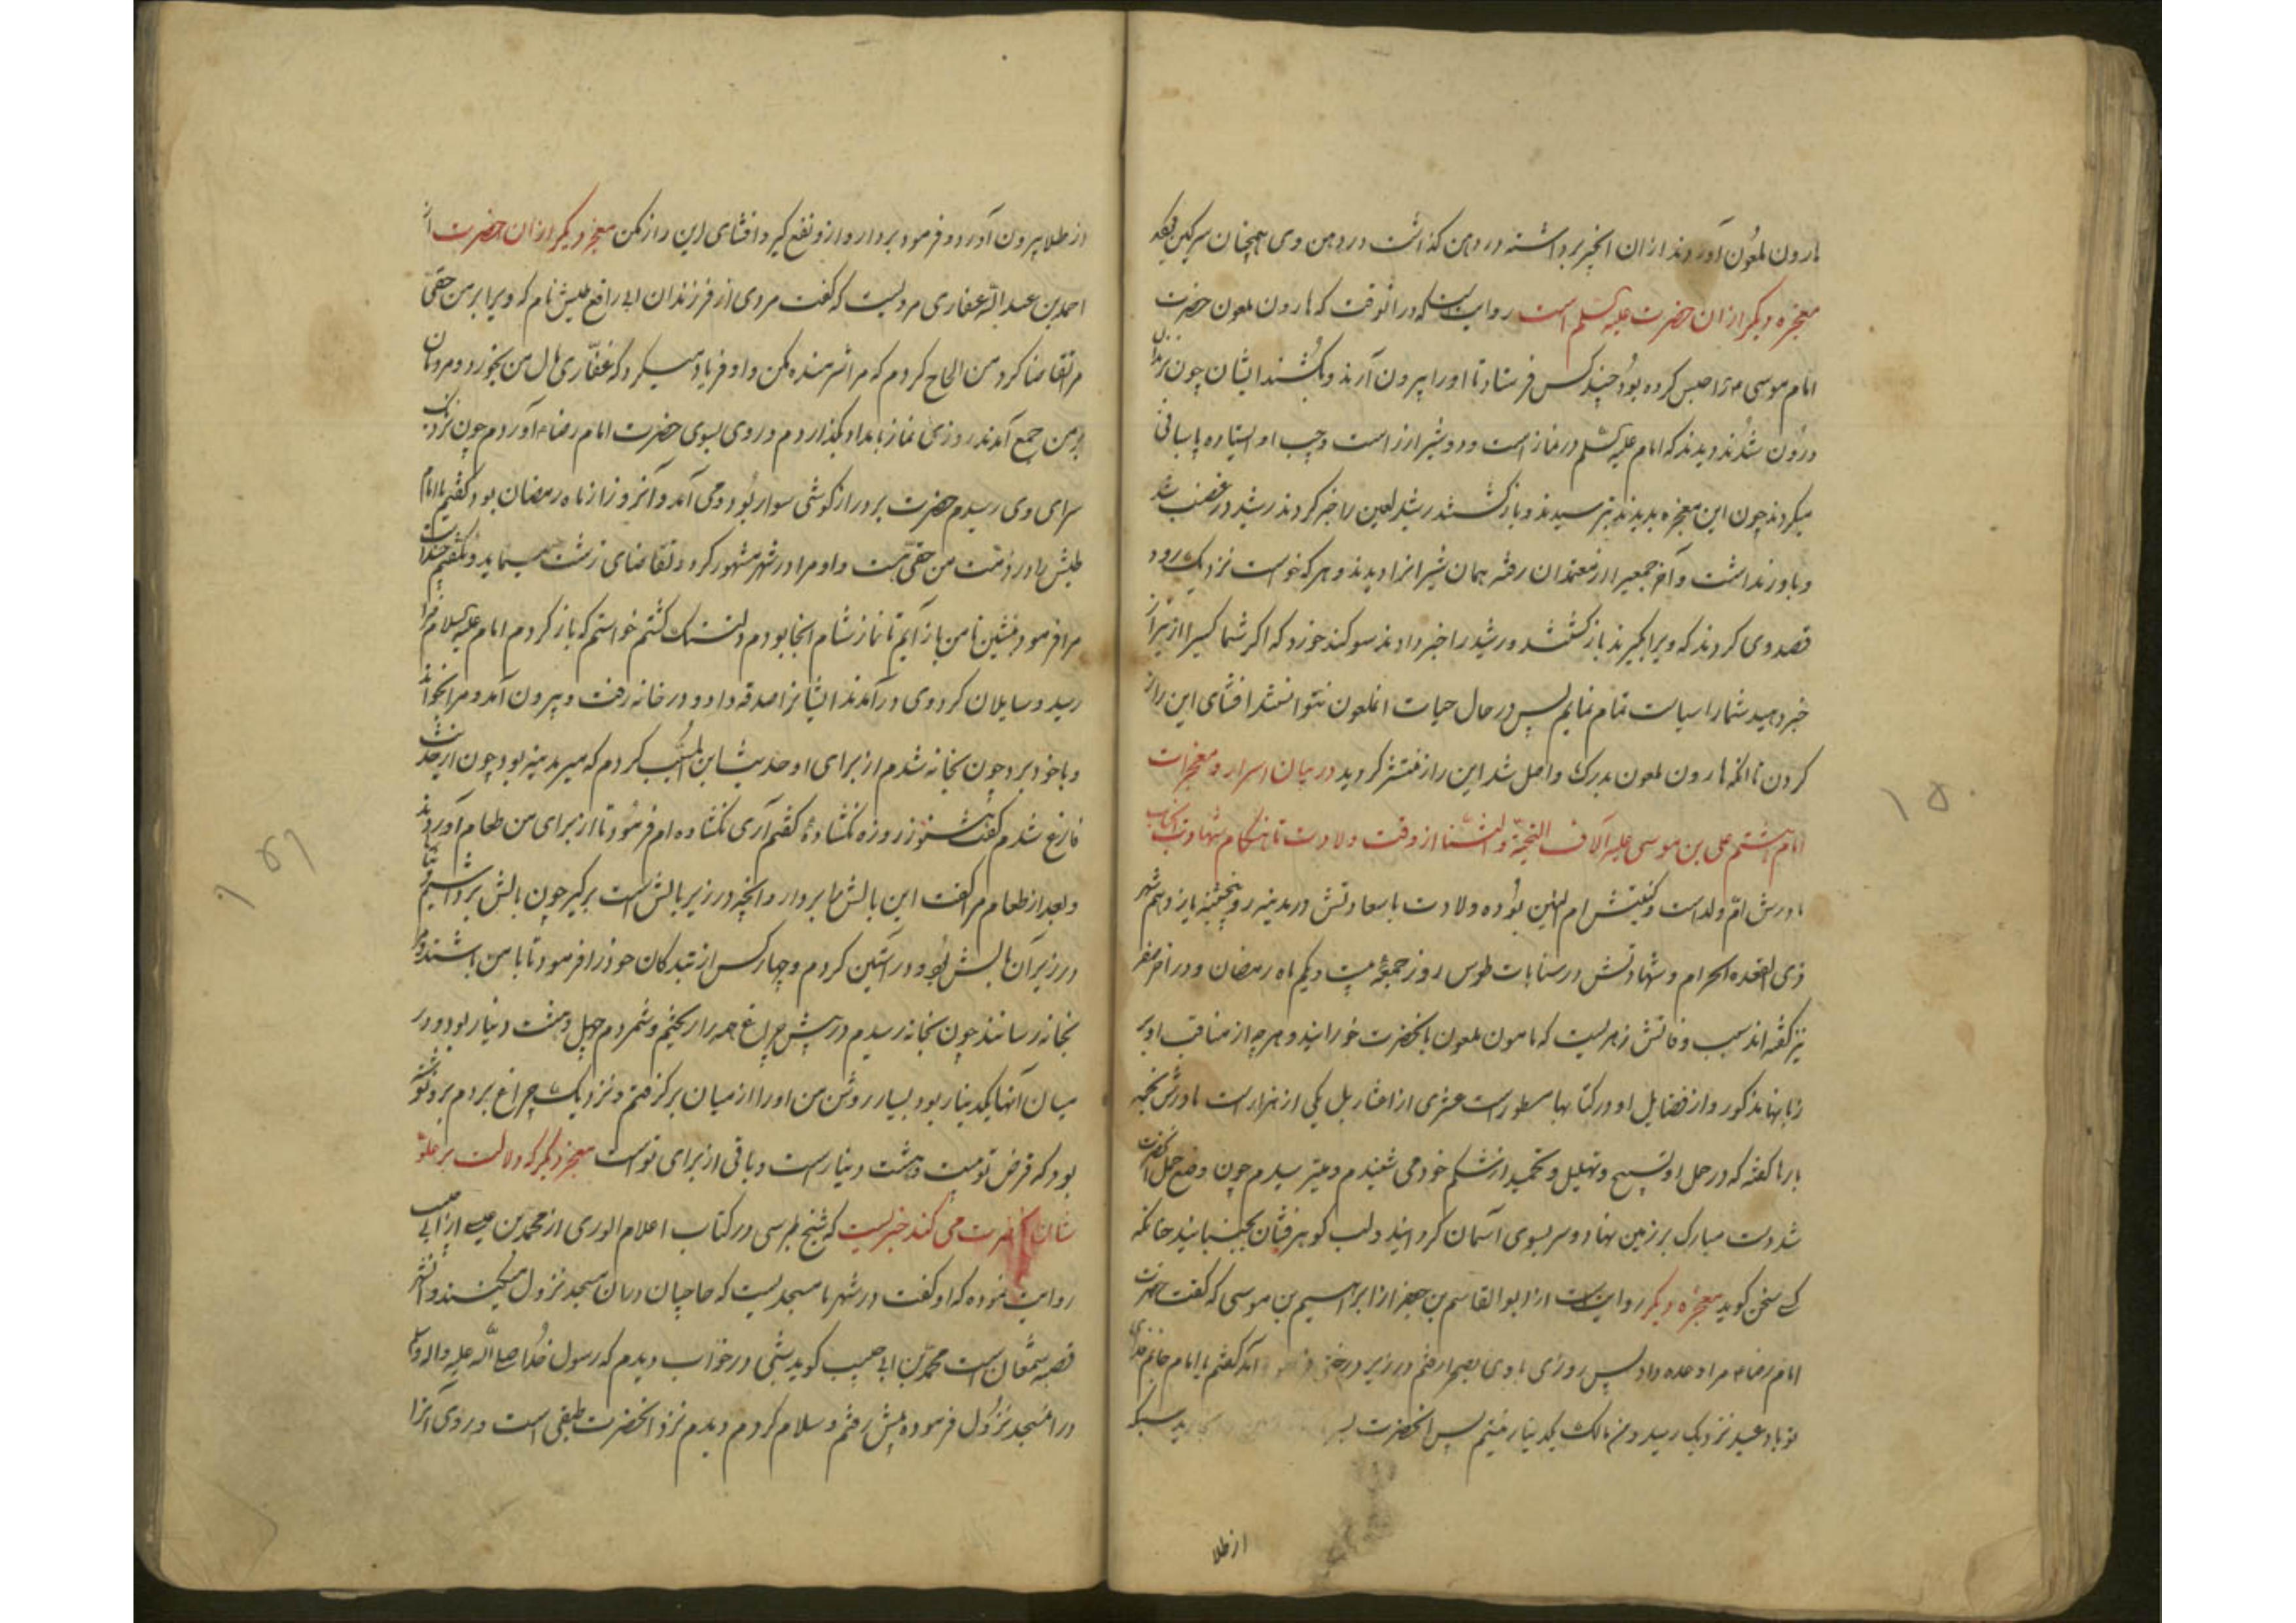 هارون ملعون آوردند از ان انجیر برداشته در دهن کذاشت در دهن وی همچنان سرکین
معجزه دیکر از ان حضرت علیه السلم است روایتست که در انوقت که هارون ملعون حضرت
امام موسی را حبس کرده بود چند کس فرستاد تا او را بیرون آرند و بکشند ایشان چون بزندان
درون شدند دیدند که امام علیه السلم در نماز است و دو شیر از راست و چپ او ایستاده پاسبانی
میکردند چون این معجزه بدیدند بترسیدند و بازکشتند رشید لعین را خبر کردند رشید در غضب شد
و باور نداشت و آخر جمعیرا از معتمدان رفته همان شیرانرا دیدند و هر که خواست نزدیک رود
قصد وی کردند که ویرا بکیرند بازکشتند و رشید را خبر دادند سوکند خورد که اکر شما کسیرا ازین راز
خبر دهید شما را سیاست تمام نمایم پس در حال حیات انملعون نتوانستند افشای این راز
کردن تا انکه هارون ملعون بدرک واصل شد این راز منتشر کردید در بیان اسرار و معجزات
امام هشتم علی بن موسی علیه آلاف التحیة والثنا از وقت ولادت تا هنکام شهادت انجناب
مادرش ام ولد است و کنیتش ام البنین بوده ولادت باسعادتش در مدینه روز پنجشنبه یازدهم شهر
ذی القعده الحرام و شهادتش در سناباد طوس روز جمعه بیست و یکم ماه رمضان و در آخر صفر
نیز کفته اند سبب وفاتش زهریست که مامون ملعون بانحضرت خورانید و هر چه از مناقب او بر
زبانها مذکور و از فضایل او در کتابها مسطور است عشری از اعشار بل یکی از هزار است مادرش نجمه
بارها کفته که در حمل او تسبیح و تهلیل و تحمید از شکم خود می شنیدم و میترسیدم چون وضع حمل انحضرت
شد دست مبارک بر زمین نهاد و سر بسوی آسمان کردانید و لب کوهرفشان بجنبانید چنانکه
کسی سخن کوید معجزه دیکر روایتست از ابوالقاسم بن جعفر از ابراهیم بن موسی که کفت حضرت
امام رضا مرا وعده داد پس روزی با وی بصحرا رفتم در زیر درختی فرود آمد کفتم یا امام
تو باد عید نزدیک رسید و من مالک یکدینار نیستم پس انحضرت
از طلا
از طلا بیرون آورد و فرمود بردار و ازو نفع کیر و افشای این راز مکن معجزه دیکر از ان حضرت از
احمد بن عبدالله غفاری مرویست که کفت مردی از فرزندان ابی رافع طیش نام که ویرا بر من حقی
مرا تقاضا کرد من الحاح کردم که مرا شرمنده مکن و او فریاد میکرد که غفاری مال من بخورد و مردمان
بر من جمع آمدند روزی نماز بامداد بکذاردم و روی بسوی حضرت امام رضا آوردم چون نزدیک
سرای وی رسیدم حضرت بر درازکوشی سوار بود و می آمد و آنروز از ماه رمضان بود کفتم یا امام
طیش را در ذمت من حقی هست و او مرا در شهر مشهور کرد و تقاضای زشت مینماید و نکفتم چند است
مرا فرمود بنشین تا من باز آیم تا نماز شام انجا بودم و دلتنک کشتم خواستم که باز کردم امام علیه السلام فرا
رسید و سایلان کرد وی درآمدند ایشانرا صدقه داد و در خانه رفت و بیرون آمد و مرا بخواند
و با خود برد چون بخانه شدم از برای او حدیث ابن المسیب کردم که میر مدینه بود چون از حدیث
فارغ شدم کفت هنوز روزه نکشادهٔ کفتم آری نکشاده ام فرمود تا از برای من طعام آوردند
و بعد از طعام مرا کفت این بالش را بردار و انچه در زیر بالش است برکیر چون بالش برداشتم
در زیر آن بالش بود در آستین کردم و چهار کس از بندکان خود را فرمود تا با من باشند و مرا
بخانه رسانند چون بخانه رسیدم در پیش چراغ همه را ریختم و شمردم چهل و هشت دینار بود و در
میان آنها یکدینار بود بسیار روشن من او را از میان برکرفتم و نزدیک چراغ بردم برو نوشته
بود که قرض تو بیست و هشت دینار است و باقی از برای تو است معجزه دیکر که دلالت بر علو
شان انحضرت می کند خبریست که شیخ طبرسی در کتاب اعلام الوری از محمد بن عیسی از ابی حبیب
روایت نموده که او کفت در شهر ما مسجدیست که حاجیان در ان مسجد نزول میکنند و آن شهر
قصبه سمغان است محمد بن ابی حبیب کوید شبی در خواب دیدم که رسول خدا صلی الله علیه واله وسلم
در ان مسجد نزول فرموده پیش رفتم و سلام کردم دیدم نزد انحضرت طبقی است و روی آنرا